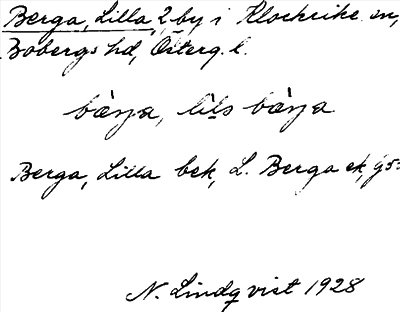 Berga, Lilla, 2 by i Klockrike sn,
Bobergs hd, Österg. l.
bærja, lìls bærja
Berga, Lilla bek, L. Berga ek, gös
N. Lindqvist 1928